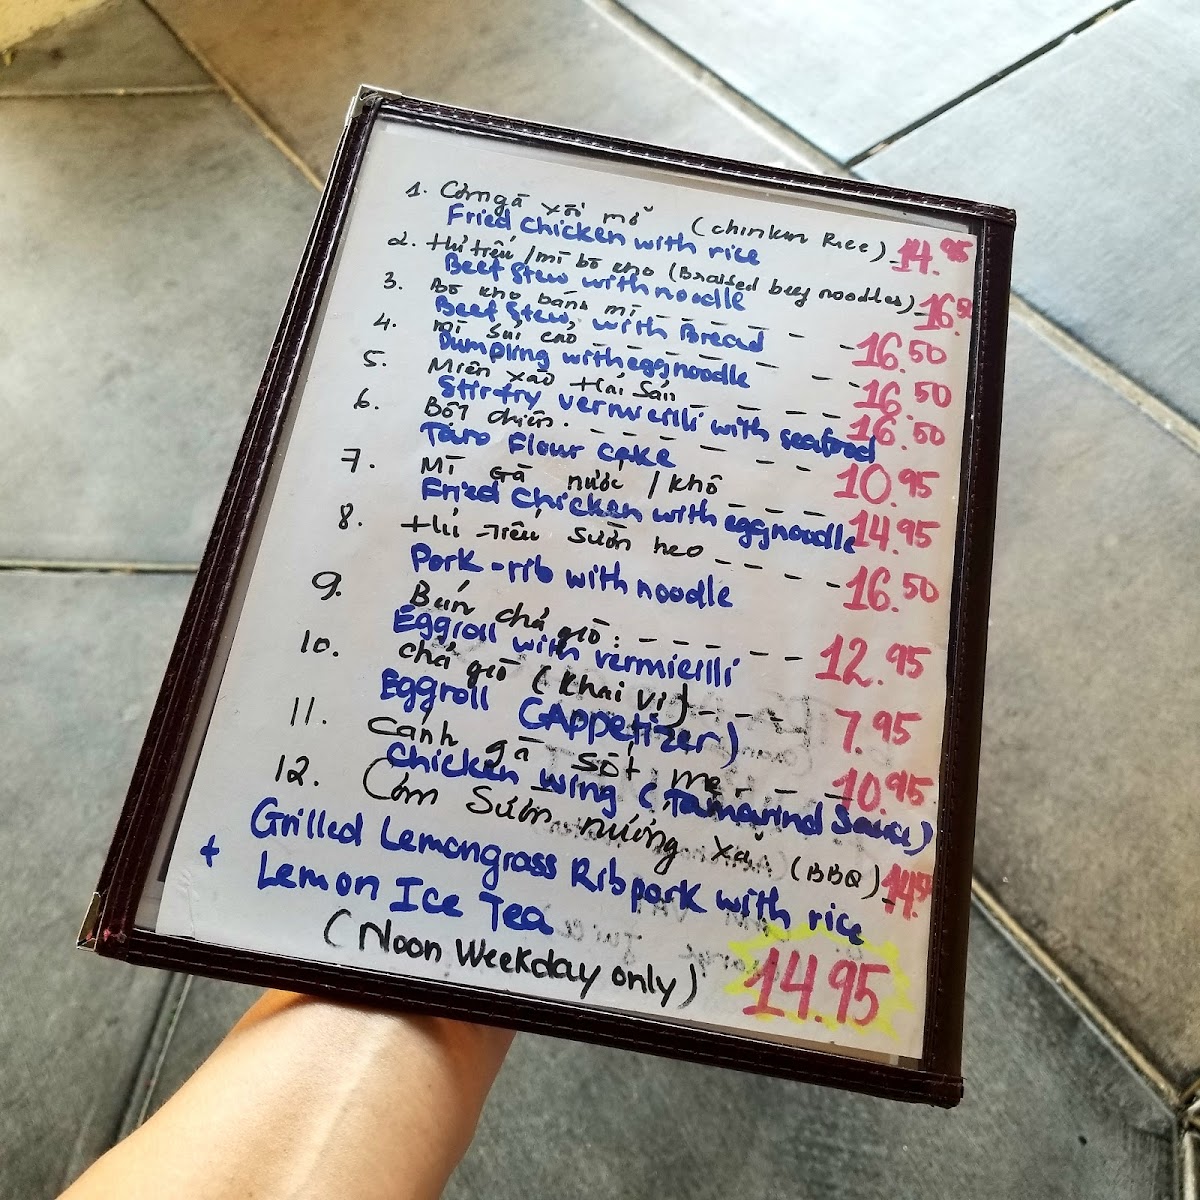 1. Cơm gà xối mỡ (chinken Rice) - 14.95
Fried chicken with rice
2. Hủ tiếu / mì bò kho (Braised beef noodles) - 16.50
Beef Stew with noodle
3. Bò kho bánh mì - - - - - - 16.50
Beef Stew, with Bread
4. mì sủi cảo - - - - - - 16.50
Dumpling with egg noodle
5. Miến xào Hải Sản - - - - 16.50
Stir-fry vermicilli with seafood
6. Bột chiên. - - - - - - - 10.95
Taro Flour cake
7. Mì Gà nước / khô - - - 14.95
Fried chicken with egg noodle
8. Hủ Tiếu Sườn heo - - - - - 16.50
Pork-rib with noodle
9. Bún chả giò: - - - - - - 12.95
Eggroll with vermicilli
10. chả giò (khai vị) - - - - 7.95
Eggroll (Appetizer)
11. cánh gà sốt me. - - - 10.95
Chicken wing (Tamarind Sauce)
12. Cơm Sườn nướng xả. (BBQ) - 14.95
Grilled Lemongrass Ribpork with rice
+ Lemon Ice Tea
(Noon Weekday only) 14.95